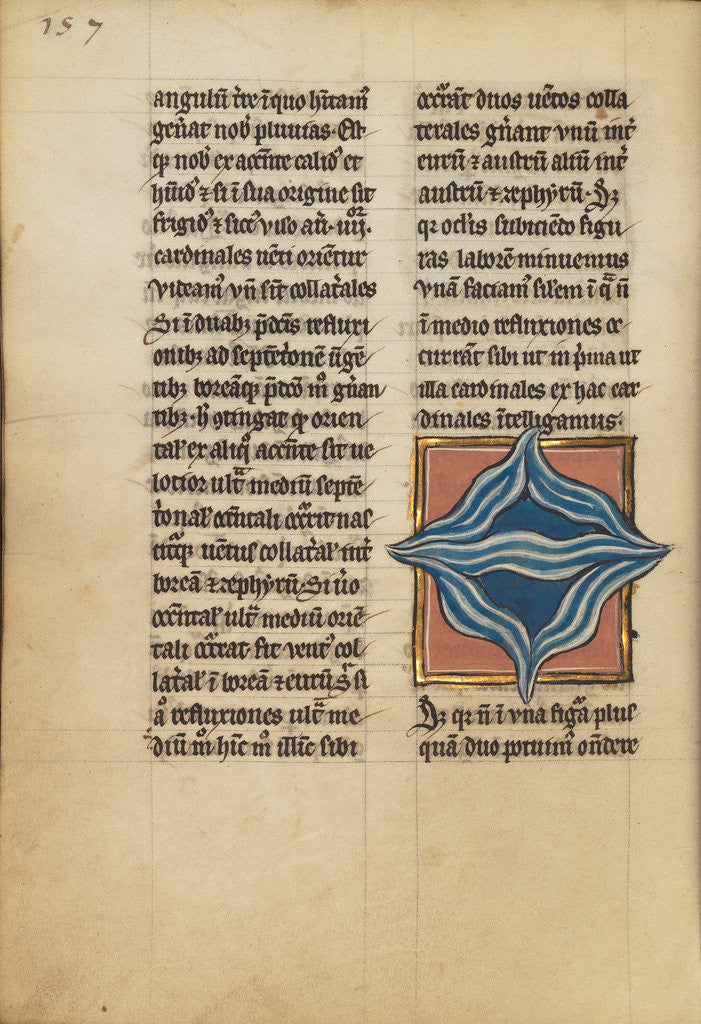 157
angulū t̄re ī quo hītam᷒
gen̄at nob᷒ pluuias. Est
qꝫ nob᷒ ex accn̄te calid᷒ et
hūid᷒ ⁊ si ī sua origine sit
frigid᷒ ⁊ sicc᷒ viso aūt. iiij.
cardinales uēti oriētur
videam᷒ vn̄ sīt collat̄ales
Si ī duabꝫ p̄dc̄is refluxi
onibꝫ ad septēt̄onē v̄gē
tibꝫ boreāqꝫ p̄dc̄o mᵒ gn̄an
tibꝫ. h̄ ꝯtingat qꝫ orien
tal̄ ex aliqᵒ accn̄te sit ue
locior ultᵃ mediū septē
t̄onal̄ occn̄tali occʳrit nas
citᵣqꝫ uētus collat̄al̄ int̄
boreā ⁊ zephyrū. Si ūo
occn̄tal̄ ultᵃ mediū oriē
tali occʳrat fit vent᷒ col
lat̄al̄ ī boreā ⁊ eurū. Sⁱ
aᵒ refluxiones ultᵃ me
diū mᵒ hīc mᵒ illīc sibi
occʳrāt duos uētos colla
terales gn̄ant vnū int̄
eurū ⁊ austrū aliū int̄
austrū ⁊ zephyrū. Sꝫ
qꝛ ocl̄is subiciēdo figu
ras laborē minuemus
vnā faciam᷒ sil̄em ī qᵃ n̄
ī medio refluxiones oc
currāt sibi ut in p̄ma ut
illa cardinales ex hac car
dinales ītelligamus.
Sꝫ qꝛ n̄ ī vna figᵃ plus
quā duo potuim᷒ on̄dere